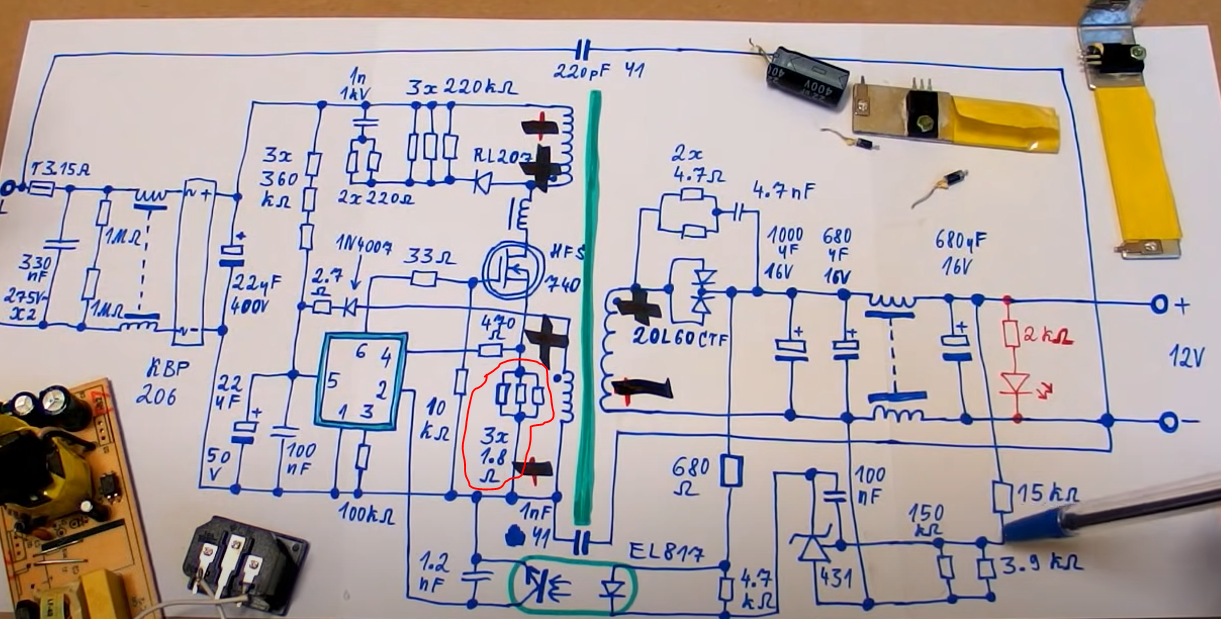 220pF Y1
T3.15A
L
330
nF
275V~
X2
1MΩ
1MΩ
KBP
206
22µF
400V
3x
360
kΩ
1n
1kV
3x 220kΩ
2x220Ω
RL207
1N4007
2.7
Ω
33Ω
HFS
740
470
Ω
6
4
5
2
1
3
10
kΩ
3x
1.8
Ω
22
µF
50
V
100
nF
100kΩ
1nF
Y1
1.2
nF
EL817
2x
4.7Ω
4.7nF
20L60CTF
1000
µF
16V
680
µF
16V
680µF
16V
2kΩ
+
12V
-
680
Ω
100
nF
150
kΩ
15kΩ
3.9kΩ
431
4.7
kΩ
400V